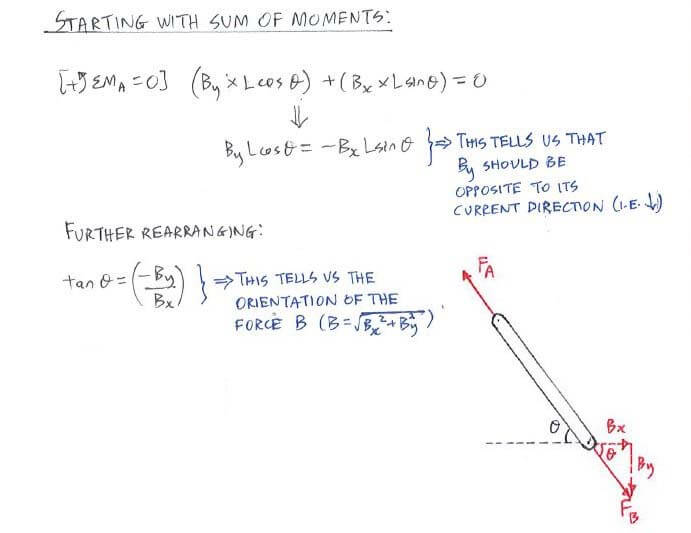 STARTING WITH SUM OF MOMENTS:
[+↺ ΣM_A = 0] (B_y × L cos θ) + (B_x × L sin θ) = 0
⇓
B_y L cos θ = -B_x L sin θ } ⇒ THIS TELLS US THAT
B_y SHOULD BE
OPPOSITE TO ITS
CURRENT DIRECTION (I.E. ↓)
FURTHER REARRANGING:
tan θ = (-B_y / B_x) } ⇒ THIS TELLS US THE
ORIENTATION OF THE
FORCE B (B = √(B_x² + B_y²))
F_A
θ
B_x
θ
B_y
F_B